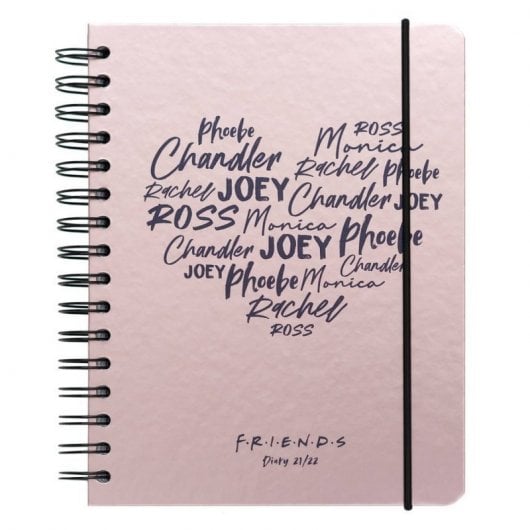 Phoebe ROSS
Chandler Monica
Rachel JOEY Rachel Phoebe
ROSS Monica Chandler JOEY
Chandler JOEY Phoebe
JOEY Phoebe Monica Chandler
Rachel
ROSS
F·R·I·E·N·D·S
Diary 21/22